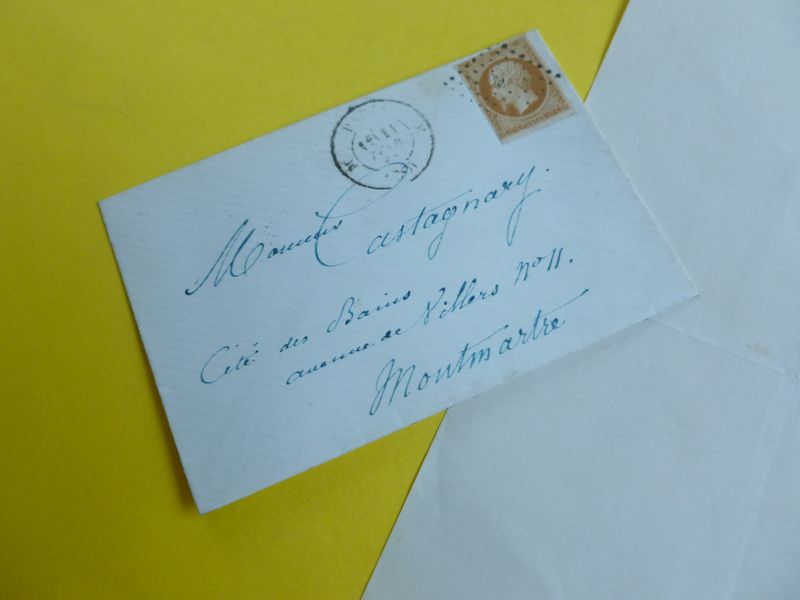 Monsieur Castagnary.
Cité des Bains
avenue de Villers nº 11.
Montmartre